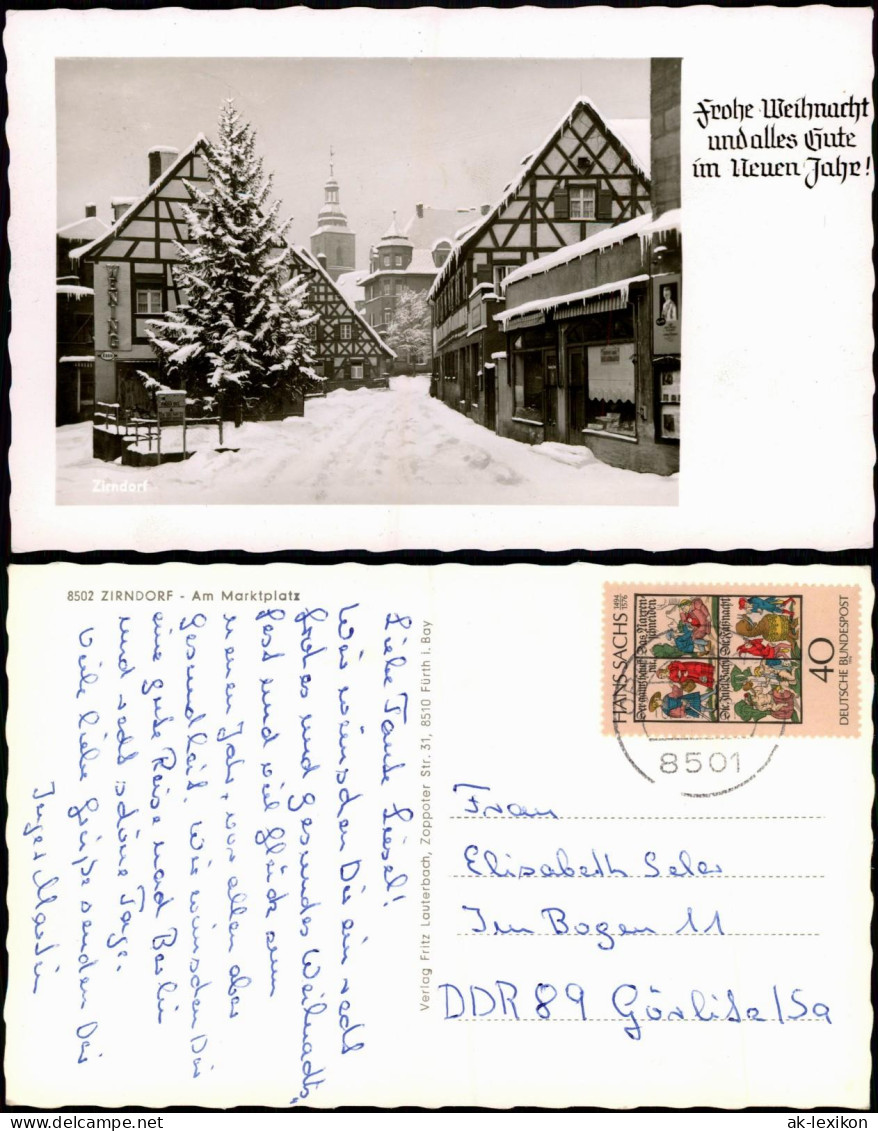 Frohe Weihnacht
und alles Gute
im Neuen Jahr!
WENING
Zirndorf
8502 ZIRNDORF - Am Marktplatz
Liebe Tante Liesel!
Wir wünschen Dir ein recht
frohes und gesundes Weihnachts-
fest und viel Glück zum
neuen Jahr, vor allen aber
Gesundheit. Wir wünschen Dir
eine gute Reise nach Berlin
und recht schöne Tage.
Viele liebe Grüße senden Dir
Martin
Verlag Fritz Lauterbach, Zoppoter Str. 31, 8510 Fürth i. Bay
HANS SACHS 1494 1576
40
DEUTSCHE BUNDESPOST
8501
Frau
Elisabeth Seler
Im Bogen 11
DDR 89 Görlitz/Sa
ak-lexikon
© ak-lexikon.com